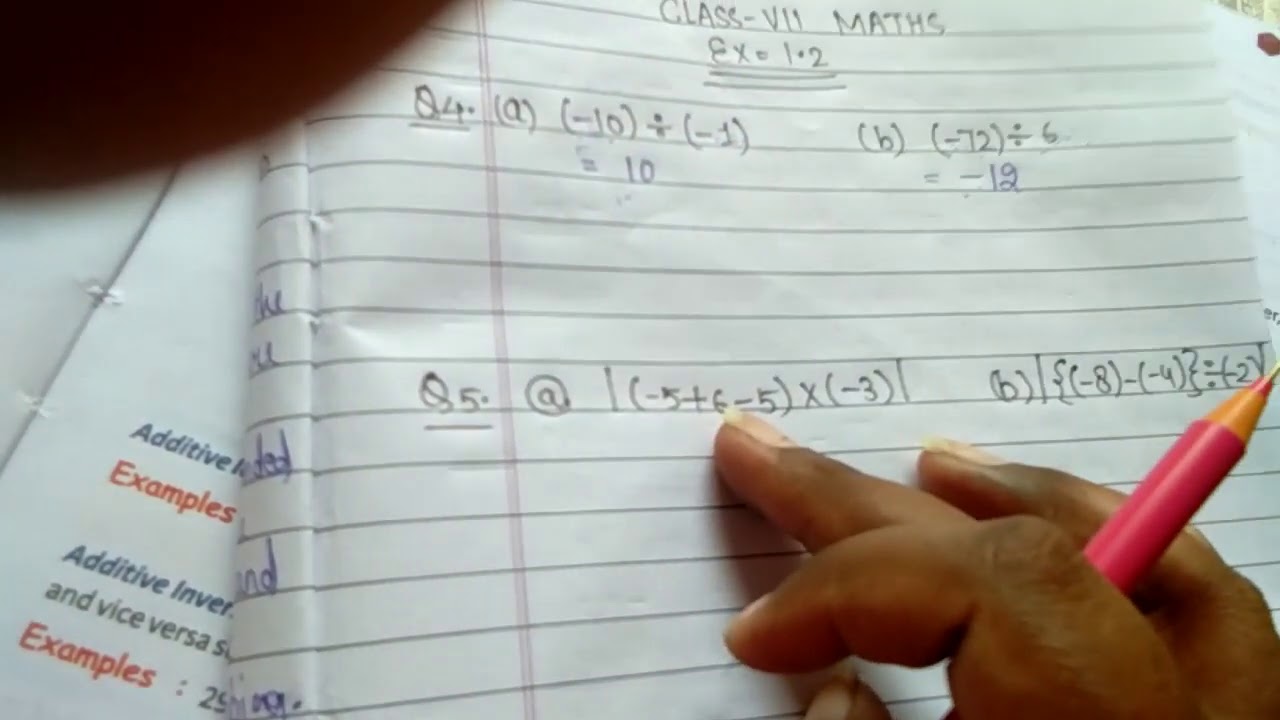 CLASS-VII MATHS
Ex= 1.2
Q4. (a) (-10) ÷ (-1) (b) (-72) ÷ 6
= 10 = -12
Q5. (a) |(-5+6-5)×(-3)| (b) |{(-8)-(-4)}÷(-2)|
Additive
Examples
Additive Inver
and vice versa
Examples :